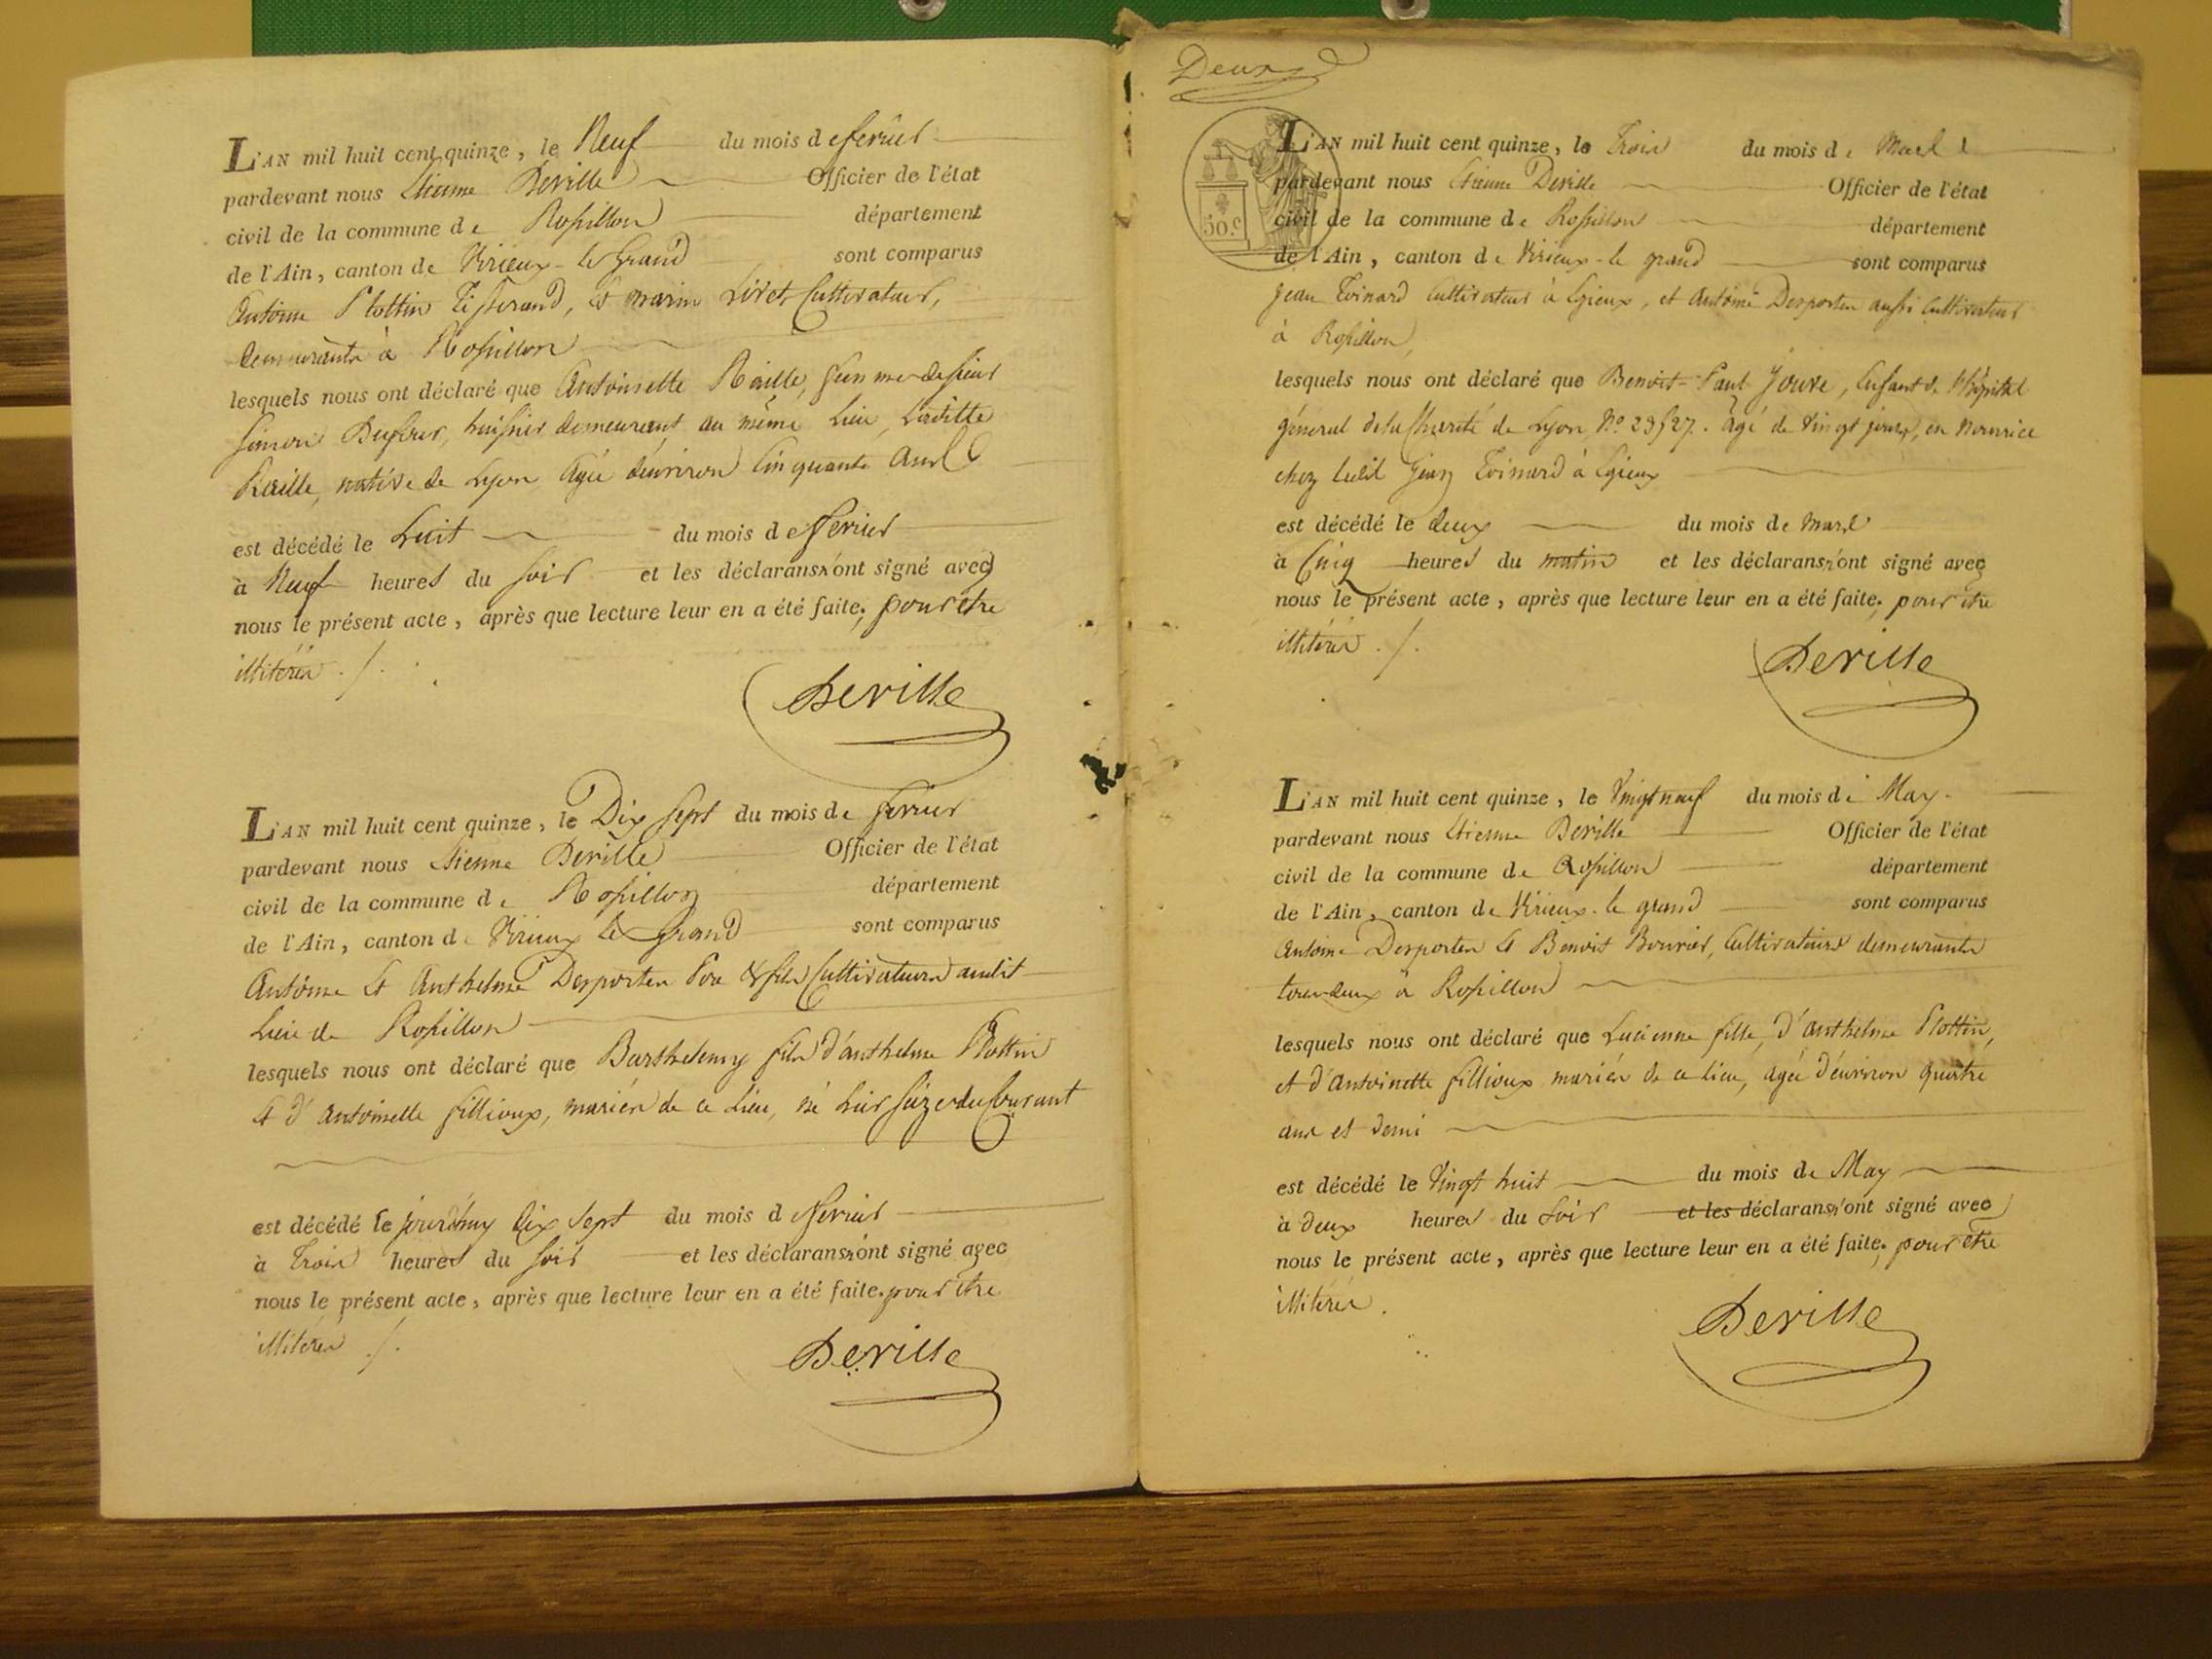 L'AN mil huit cent quinze, le Neuf du mois de fevrier
pardevant nous Etienne Deville Officier de l'état
civil de la commune de Rossillon département
de l'Ain, canton de Virieux-le Grand sont comparus
Antoine Plottin Tisserand, et marin Livet, Cultivateur,
demeurants à Rossillon
lesquels nous ont déclaré que Antoinette Raille, femme de sieur
Simon huissier demeurant au même Lieu, Laditte
Raille, native de Lyon Agée d'environ Cinquante ans
est décédé le huit du mois de fevrier
à Neuf heures du soir et les déclarans n'ont signé avec
nous le présent acte, après que lecture leur en a été faite, pour être
illitérés ./.
Deville
L'AN mil huit cent quinze, le Dix sept du mois de fevrier
pardevant nous Etienne Deville Officier de l'état
civil de la commune de Rossillon département
de l'Ain, canton de Virieux le Grand sont comparus
Antoine et Anthelme Desportes Pere & fils Cultivateurs audit
Lieu de Rossillon
lesquels nous ont déclaré que Barthelemy fils d'anthelme Plottin
et d'antoinette fillioux, mariés de ce Lieu, né hier seize du Courant
est décédé le jourd'huy dix sept du mois de fevrier
à Trois heures du soir et les déclarans n'ont signé avec
nous le présent acte, après que lecture leur en a été faite. pour être
illitérés ./.
Deville
Deux
50.c
L'AN mil huit cent quinze, le Trois du mois de Mars
pardevant nous Etienne Deville Officier de l'état
civil de la commune de Rossillon département
de l'Ain, canton de Virieux-le grand sont comparus
Jean Toinard Cultivateur à Egieux, et Antoine Desportes aussi Cultivateur
à Rossillon,
lesquels nous ont déclaré que Benoit-Paul Jouve, Enfant de l'hôpital
général de la Charité de Lyon, No. 23527. âgé de Vingt jours, en nourrice
chez ledit Jean Toinard à Egieux
est décédé le deux du mois de mars
à Cinq heures du matin et les déclarans n'ont signé avec
nous le présent acte, après que lecture leur en a été faite. pour être
illitérés ./.
Deville
L'AN mil huit cent quinze, le Vingt neuf du mois de May
pardevant nous Etienne Deville Officier de l'état
civil de la commune de Rossillon département
de l'Ain, canton de Virieux-le grand sont comparus
Antoine Desportes et Benoit Bouvier, Cultivateurs demeurants
tous deux à Rossillon
lesquels nous ont déclaré que Lucienne fille, d'anthelme Plottin,
et d'antoinette fillioux mariés de ce lieu, agée d'environ quatre
ans et demi
est décédé le Vingt huit du mois de May
à deux heures du soir et les déclarans n'ont signé avec
nous le présent acte, après que lecture leur en a été faite. pour être
illitérés.
Deville